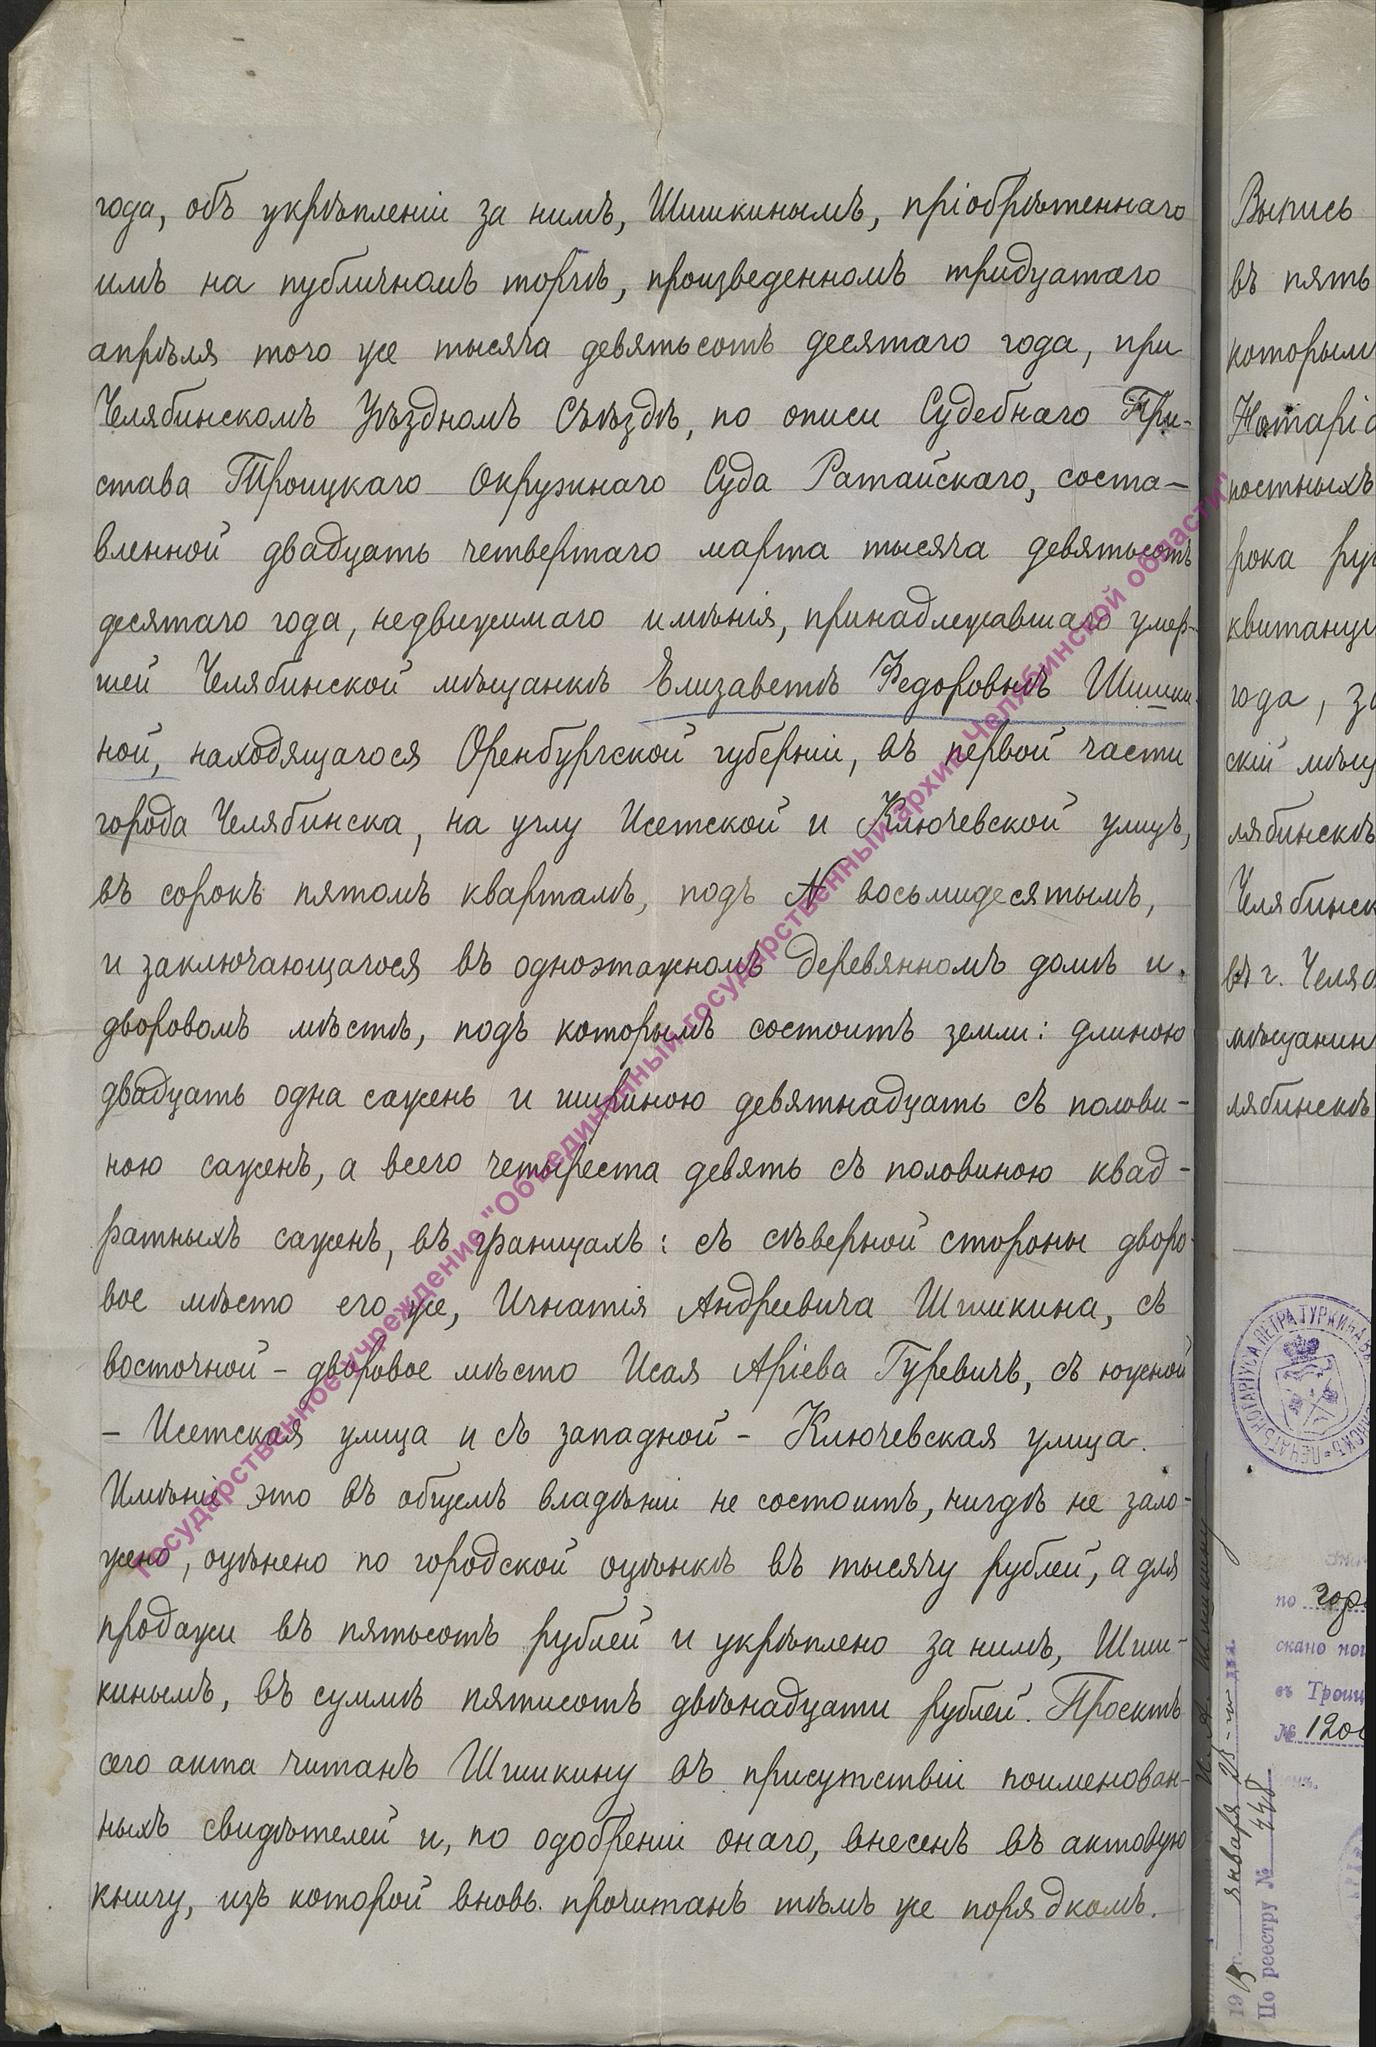 года, объ укрѣпленіи за нимъ, Шишкинымъ, пріобрѣтеннаго
имъ на публичномъ торгѣ, произведенномъ тридцатаго
апрѣля того же тысяча девятьсотъ десятаго года, при
Челябинскомъ Уѣздномъ Съѣздѣ, по описи Судебнаго При-
става Троицкаго Окружнаго Суда Ратайскаго, соста-
вленной двадцать четвертаго марта тысяча девятьсотъ
десятаго года, недвижимаго имѣнія, принадлежавшаго умер-
шей Челябинской мѣщанкѣ Елизаветѣ Федоровнѣ Шишки-
ной, находящагося Оренбургской губерніи, въ первой части
города Челябинска, на углу Исетской и Ключевской улицъ,
въ сорокъ пятомъ кварталѣ, подъ № восьмидесятымъ,
и заключающагося въ одноэтажномъ деревянномъ домѣ и
дворовомъ мѣстѣ, подъ которымъ состоитъ земли: длиною
двадцать одна сажень и шириною девятнадцать съ полови-
ною сажень, а всего четыреста девять съ половиною квад-
ратныхъ сажень, въ границахъ: съ сѣверной стороны дворо-
вое мѣсто его же, Игнатія Андреевича Шишкина, съ
восточной - дворовое мѣсто Исая Аріева Гуревичъ, съ южной
- Исетская улица и съ западной - Ключевская улица.
Имѣніе это въ общемъ владѣніи не состоитъ, нигдѣ не зало-
жено, оцѣнено по городской оцѣнкѣ въ тысячу рублей, а для
продажи въ пятьсотъ рублей и укрѣплено за нимъ, Шиш-
кинымъ, въ суммѣ пятисотъ двѣнадцати рублей. Проектъ
сего акта читанъ Шишкину въ присутствіи поименован-
ныхъ свидѣтелей и, по одобреніи онаго, внесенъ въ актовую
книгу, изъ которой вновь прочитанъ тѣмъ же порядкомъ.
Государственное учреждение "Объединенный государственный архив Челябинской области"
Выпись
въ пять
которым
Нотаріа
постныхъ
рока руб
квитанци
года, за
скій мѣщ
лябинскѣ
Челябинск
въ г. Челяб
мѣщанин
лябинскѣ
по гор
скано по
въ Троиц
№ 120
января
По реестру № 448